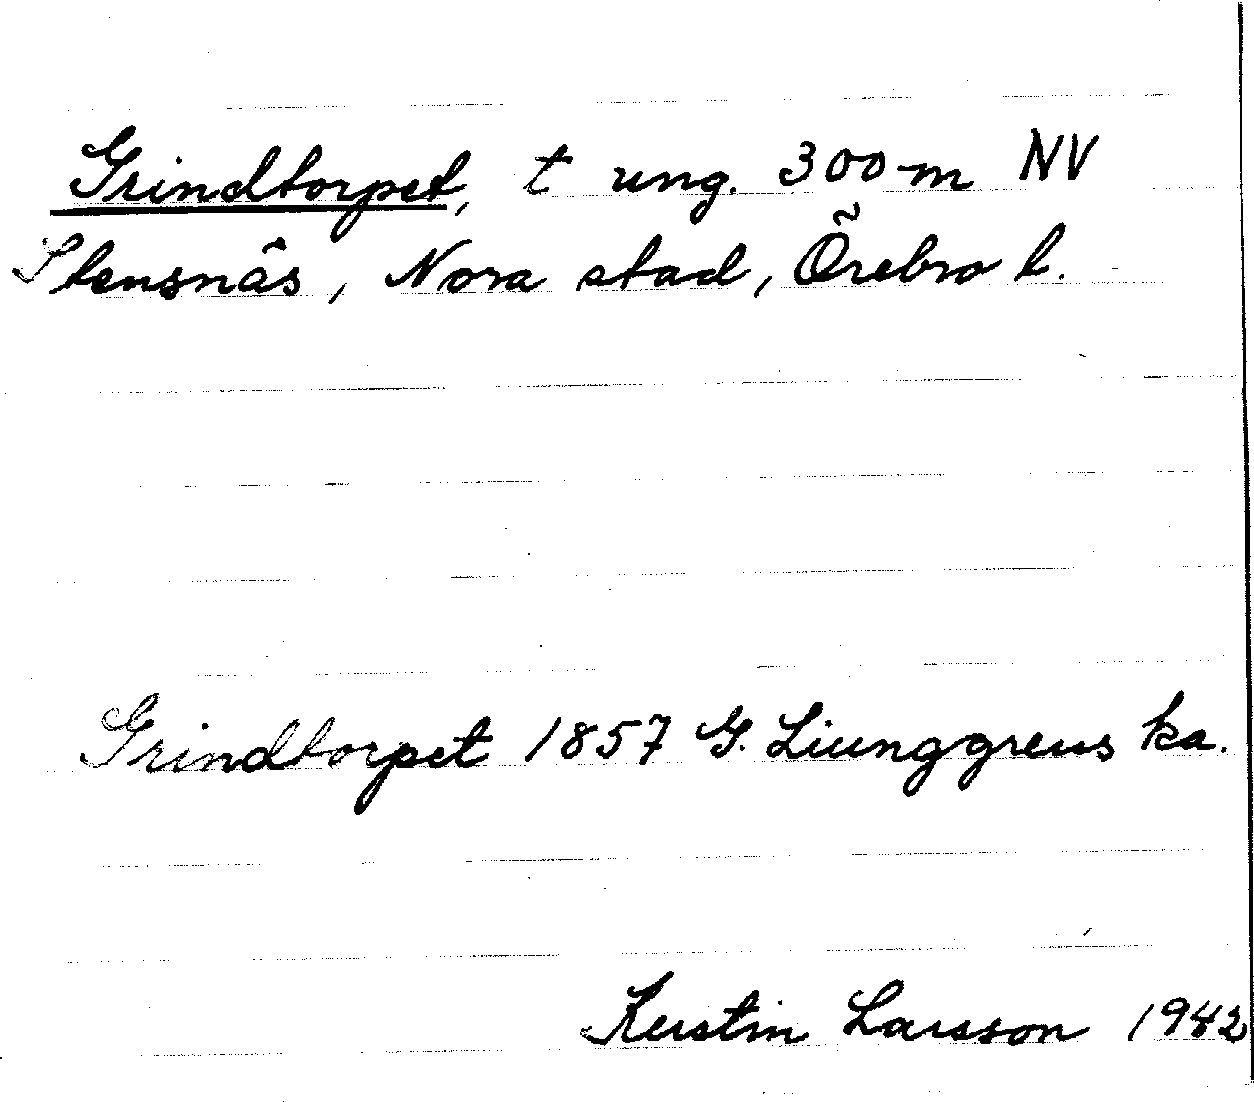 Grindtorpet, t ung. 300 m NV
Stensnäs, Nora stad, Örebro l.
Grindtorpet 1857 G. Liunggrens ka.
Kerstin Larsson 1942